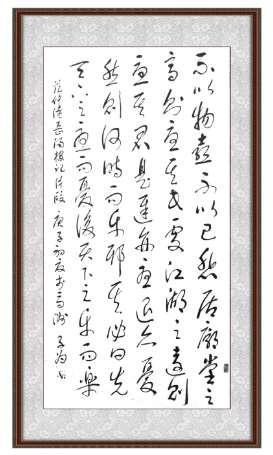 不以物喜不以己悲居廟堂之
高則憂其民處江湖之遠則
憂其君是進亦憂退亦憂
然則何時而樂耶其必曰先
天下之憂而憂後天下之樂而樂
范仲淹岳陽樓記片段 庚子初夏於